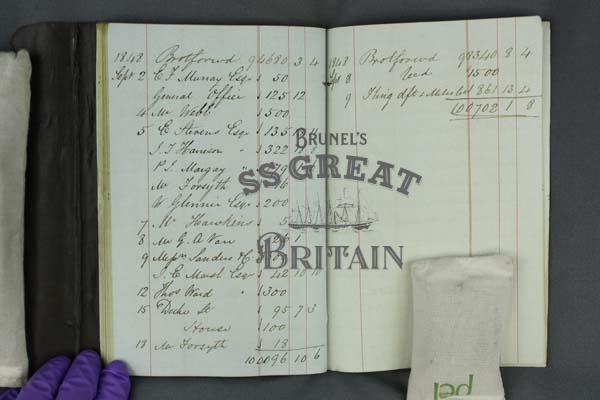 1848 Brotforwd 94680 3 4
Sept 2 C J Murray Esqr 50
General Office 125 12
4 Mr Webb 500
5 C Stevens Esqr 135
J. T. Harrison " 322
P. L. Margary "
Mr Forsyth
W Glennie Esqr 200
7 Mr Hawkins 5
8 Mr G. A Vau
9 Messrs Sanders
J. C. Marsh Esq 42 10 10
12 Thos Ward " 300
15 Duke St 95 7 3
House 100
18 Mr Forsyth 18
100096 10 6
1848 Brotforwd 98340 8 4
Sept 8 Cash 1500
9 861 13 4
100702 1 8
BRUNEL'S
SS GREAT
BRITAIN
pel